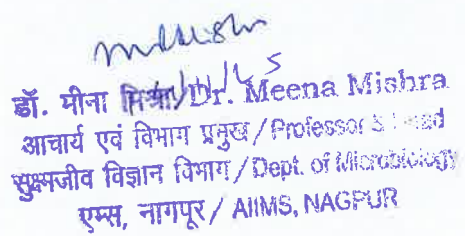 डॉ. मीना मिश्रा/Dr. Meena Mishra
आचार्य एवं विभाग प्रमुख/Professor & Head
सुक्ष्मजीव विज्ञान विभाग/Dept. of Microbiology
एम्स, नागपूर/AIIMS, NAGPUR